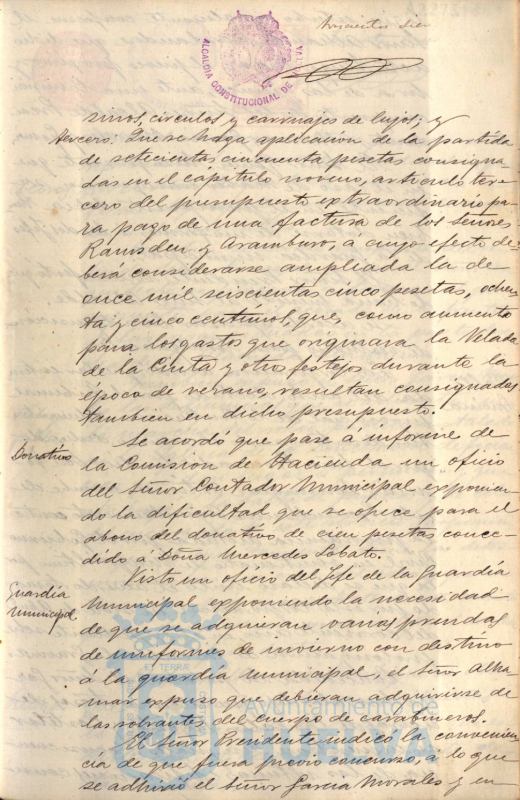 ALCALDIA CONSTITUCIONAL DE
sinos, circulos y carruajes de lujos; y
tercero: Que se haga aplicacion de la partida
de setecientas cincuenta pesetas consigna-
das en el capitulo noveno, articulo ter-
cero del presupuesto extraordinario pa-
ra pago de una factura de los señores
Ramsden y Aramburo, a cuyo efecto de-
berá considerarse ampliada la de
once mil seiscientas cinco pesetas, ochen-
ta y cinco centimos, que, como aumento
para los gastos que originara la Velada
de la Cinta y otro festejo durante la
época de verano, resultan consignadas
tambien en dicho presupuesto.
Donativo
Se acordó que pase á informe de
la Comision de Hacienda un oficio
del Señor Contador Municipal exponien-
do la dificultad que se ofrece para el
abono del donativo de cien pesetas conce-
dido á Doña Mercedes Lobato.
Guardia
Municipal
Visto un oficio del Jefe de la Guardia
Municipal exponiendo la necesidad
de que se adquieran varias prendas
de uniformes de invierno con destino
á la guardia municipal, el Señor Alha-
mar expuso que debieran adquirirse de
las sobrantes del cuerpo de carabineros.
El Señor Presidente indicó la convenien-
cia de que fuera previo concurso, á lo que
se adhirió el Señor Garcia Morales y en
Ayuntamiento de
HUELVA